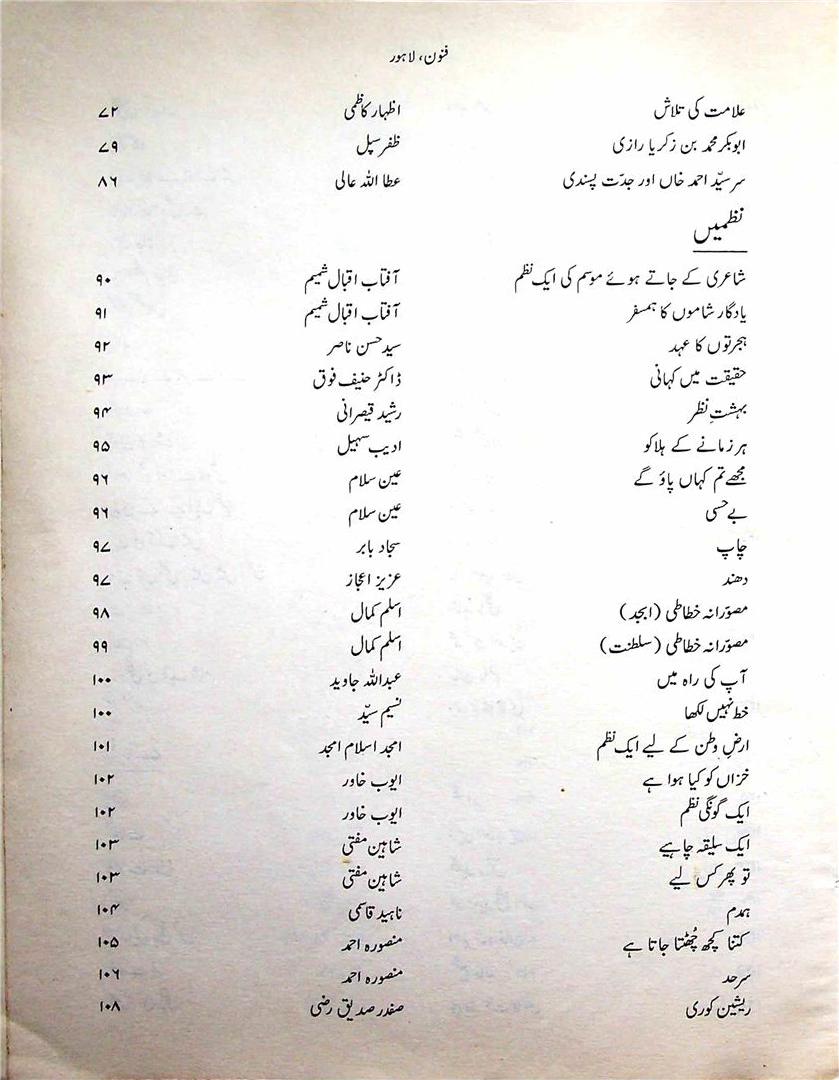 فنون، لاہور
علامت کی تلاش اظہار کاظمی ۷۲
ابوبکر محمد بن زکریا رازی ظفر سپل ۷۹
سر سیّد احمد خاں اور جدّت پسندی عطا اللہ عالی ۸۶
نظمیں
شاعری کے جاتے ہوئے موسم کی ایک نظم آفتاب اقبال شمیم ۹۰
یادگار شاموں کا ہمسفر آفتاب اقبال شمیم ۹۱
ہجرتوں کا عہد سید حسن ناصر ۹۲
حقیقت میں کہانی ڈاکٹر حنیف فوق ۹۳
بہشتِ نظر رشید قیصرانی ۹۴
ہر زمانے کے ہلاکو ادیب سہیل ۹۵
مجھے تم کہاں پاؤ گے عین سلام ۹۶
بے حسی عین سلام ۹۶
چاپ سجاد بابر ۹۷
دھند عزیز اعجاز ۹۷
مصوّرانہ خطاطی (ابجد) اسلم کمال ۹۸
مصوّرانہ خطاطی (سلطنت) اسلم کمال ۹۹
آپ کی راہ میں عبداللہ جاوید ۱۰۰
خط نہیں لکھا نسیم سیّد ۱۰۰
ارضِ وطن کے لیے ایک نظم امجد اسلام امجد ۱۰۱
خزاں کو کیا ہوا ہے ایوب خاور ۱۰۲
ایک گونگی نظم ایوب خاور ۱۰۲
ایک سلیقہ چاہیے شاہین مفتی ۱۰۳
تو پھر کس لیے شاہین مفتی ۱۰۳
ہمدم ناہید قاسمی ۱۰۴
کتنا کچھ چُھٹتا جاتا ہے منصورہ احمد ۱۰۵
سرحد منصورہ احمد ۱۰۶
ریشین کوری صفدر صدیق رضی ۱۰۸